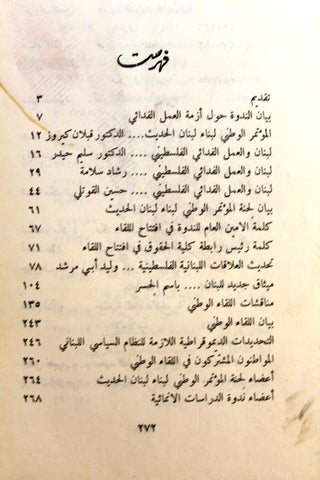 فهرست
تقديم ٣
بيان الندوة حول أزمة العمل الفدائي ٧
المؤتمر الوطني لبناء لبنان الحديث.... الدكتور قبلان كيروز ١٢
لبنان والعمل الفدائي الفلسطيني .... الدكتور سليم حيدر ١٦
لبنان والعمل الفدائي الفلسطيني .... رشاد سلامة ٢٩
لبنان والعمل الفدائي الفلسطيني .... حسين القوتلي ٤٤
بيان لجنة المؤتمر الوطني لبناء لبنان الحديث ٦١
كلمة الامين العام للندوة في افتتاح اللقاء ٦٧
كلمة رئيس رابطة كلية الحقوق في افتتاح اللقاء ٧١
تحديث العلاقات اللبنانية الفلسطينية ... وليد أبي مرشد ٧٨
ميثاق جديد للبنان .... باسم الجسر ١٠٤
مناقشات اللقاء الوطني ١٣٥
بيان اللقاء الوطني ٢٤٣
التحديدات الديموقراطية اللازمة للنظام السياسي اللبناني ٢٤٦
المواطنون المشتركون في اللقاء الوطني ٢٦٠
أعضاء لجنة المؤتمر الوطني لبناء لبنان الحديث ٢٦٤
أعضاء ندوة الدراسات الانمائية ٢٦٨
٢٧٢